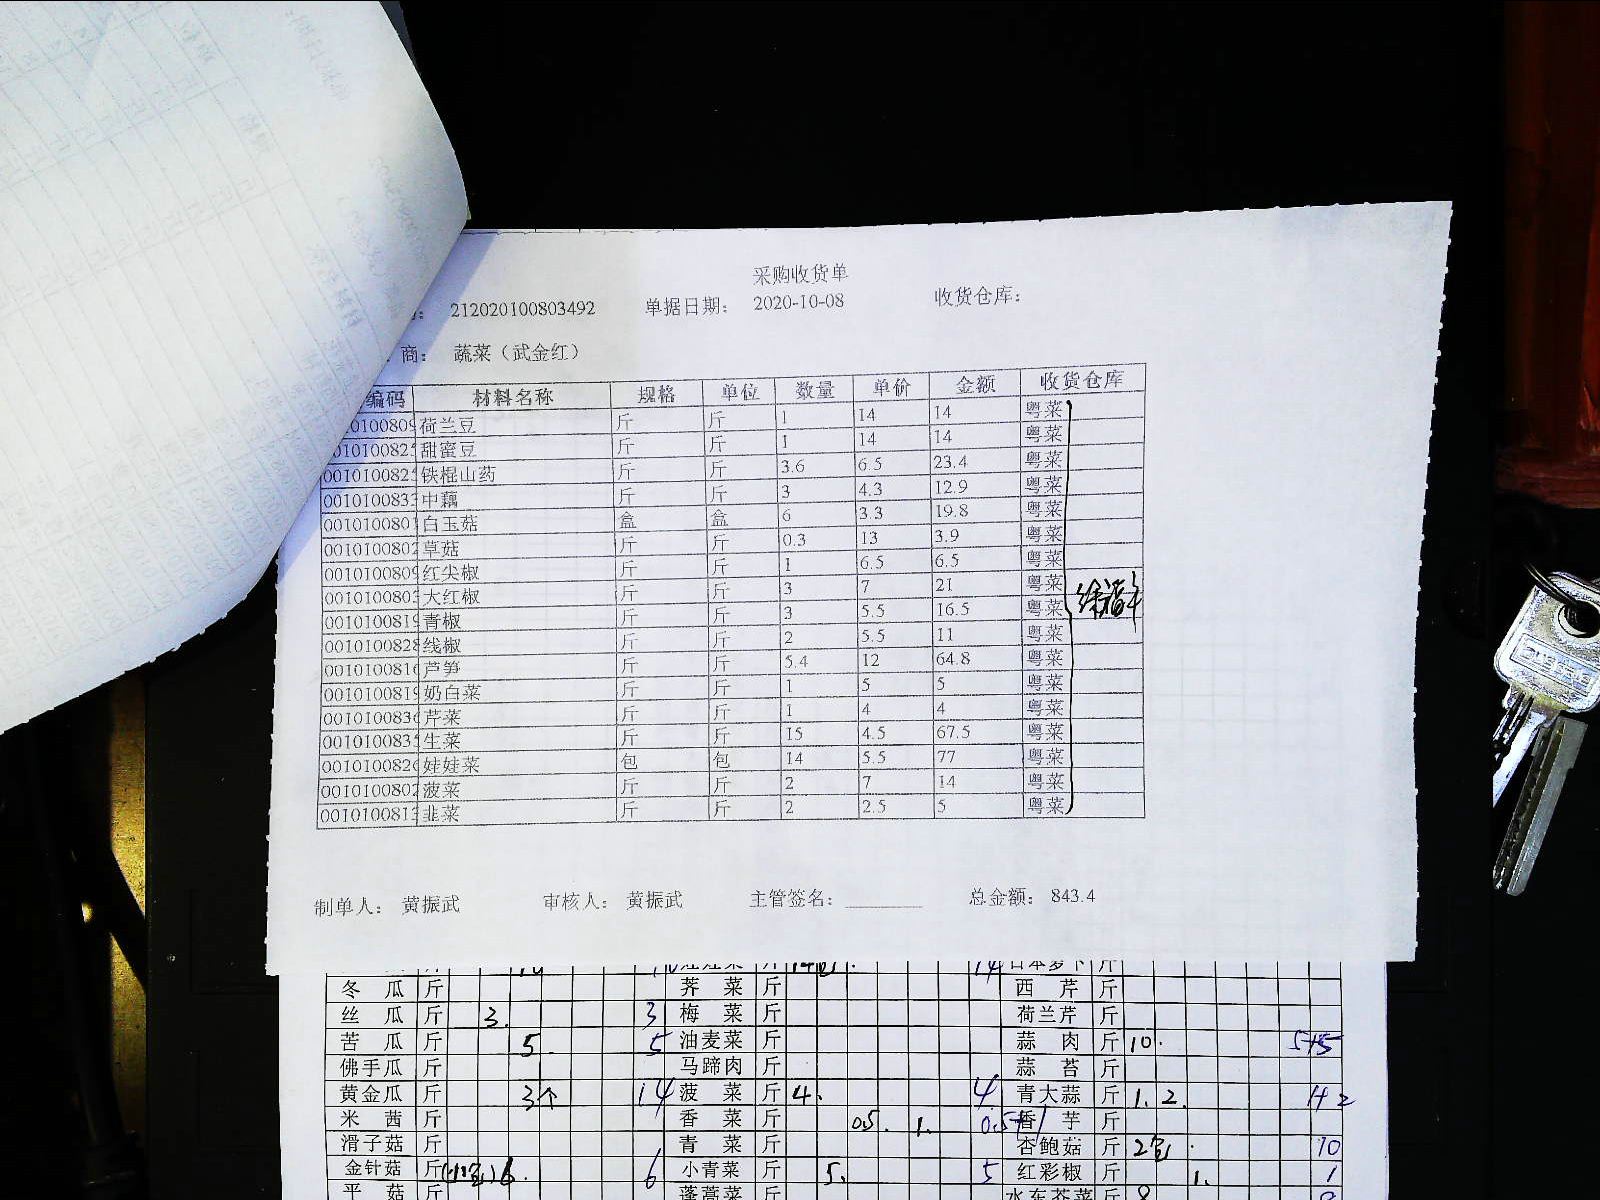 采购收货单
212020100803492 单据日期： 2020-10-08 收货仓库：
商： 蔬菜（武金红）
编码 材料名称 规格 单位 数量 单价 金额 收货仓库
荷兰豆 斤 斤 1 14 14 粤菜
甜蜜豆 斤 斤 1 14 14 粤菜
001010082 铁棍山药 斤 斤 3.6 6.5 23.4 粤菜
001010083 中藕 斤 斤 3 4.3 12.9 粤菜
001010080 白玉菇 盒 盒 6 3.3 19.8 粤菜
001010080 草菇 斤 斤 0.3 13 3.9 粤菜
001010080 红尖椒 斤 斤 1 6.5 6.5 粤菜
001010080 大红椒 斤 斤 3 7 21 粤菜
001010081 青椒 斤 斤 3 5.5 16.5 粤菜
001010082 线椒 斤 斤 2 5.5 11 粤菜
001010081 芦笋 斤 斤 5.4 12 64.8 粤菜
001010081 奶白菜 斤 斤 1 5 5 粤菜
001010083 芹菜 斤 斤 1 4 4 粤菜
001010083 生菜 斤 斤 15 4.5 67.5 粤菜
001010082 娃娃菜 包 包 14 5.5 77 粤菜
001010080 菠菜 斤 斤 2 7 14 粤菜
001010081 韭菜 斤 斤 2 2.5 5 粤菜
制单人： 黄振武 审核人： 黄振武 主管签名： 总金额： 843.4
冬瓜 斤 荠菜 斤 西芹 斤
丝瓜 斤 3. 3 梅菜 斤 荷兰芹 斤
苦瓜 斤 5 5 油麦菜 斤 蒜肉 斤 10. 5+5
佛手瓜 斤 马蹄肉 斤 蒜苔 斤
黄金瓜 斤 3个 14 菠菜 斤 4. 4 青大蒜 斤 1. 2.
米茜 斤 香菜 斤 0.5. 1. 香芋 斤
滑子菇 斤 青菜 斤 杏鲍菇 斤 2包. 10
金针菇 斤 6. 6 小青菜 斤 5. 5 红彩椒 斤 1. 1
平菇 斤 蓬蒿菜 斤 水东芥菜 斤